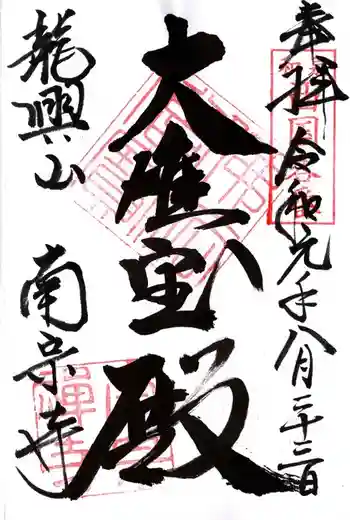 奉拝 令和元年八月二十三日
大雄宝殿
龍興山 南宗寺